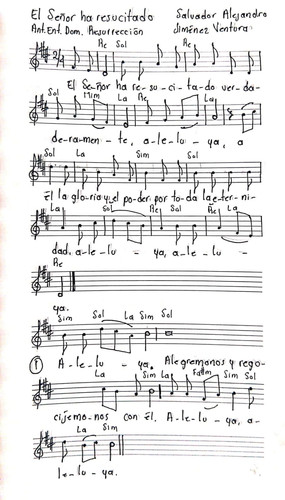 El Señor ha resucitado Salvador Alejandro
Ant. Ent. Dom. Resurrección Jiménez Ventura
Re Sol Re
El Se-ñor ha re-su-ci-ta-do ver-da-
Sol Mim La Re La
de-ra-men-te, a-le-lu-ya, a
Sol La Sim Sol
Él la glo-ria y el po-der por to-da la e-ter-ni-
La Sol Re Sol Re La
dad. a-le-lu-ya, a-le-lu-
Re
ya.
Sim Sol La Sim Sol
A-le-lu-ya. Alegrémonos y rego-
La Sim La Fa#m Sim Sol
cijemo-nos con Él. A-le-lu-ya, a-
La Sim
le-lu-ya.